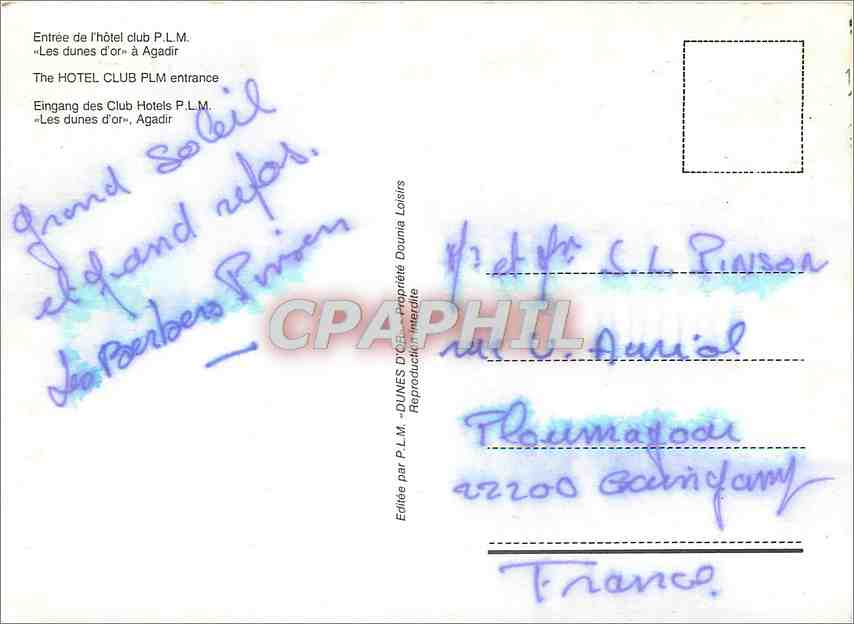 Entrée de l'hôtel club P.L.M.
«Les dunes d'or» à Agadir
The HOTEL CLUB PLM entrance
Eingang des Club Hotels P.L.M.
«Les dunes d'or», Agadir
grand soleil
et grand repos.
Les Berbers Pinson
Editée par P.L.M. «DUNES D'OR» - Propriété Dounia Loisirs
Reproduction Interdite
CPAPHIL
et S.L. PINSON
rue V. Auriol
Ploumagoar
22200 Guingamp
France.